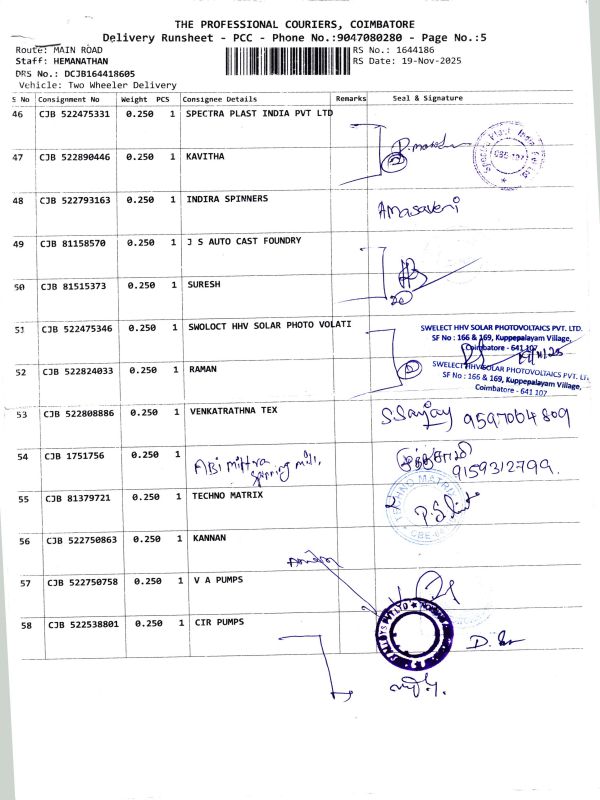 THE PROFESSIONAL COURIERS, COIMBATORE
Delivery Runsheet - PCC - Phone No.:9047080280 - Page No.:5
Route: MAIN ROAD
RS No.: 1644186
Staff: HEMANATHAN
RS Date: 19-Nov-2025
DRS No.: DCJB164418605
Vehicle: Two Wheeler Delivery
S No Consignment No Weight PCS Consignee Details Remarks Seal & Signature
46 CJB 522475331 0.250 1 SPECTRA PLAST INDIA PVT LTD
47 CJB 522890446 0.250 1 KAVITHA
48 CJB 522793163 0.250 1 INDIRA SPINNERS
Amasaveni
49 CJB 81158570 0.250 1 J S AUTO CAST FOUNDRY
50 CJB 81515373 0.250 1 SURESH
51 CJB 522475346 0.250 1 SWOLOCT HHV SOLAR PHOTO VOLATI
SWELECT HHV SOLAR PHOTOVOLTAICS PVT. LTD.
SF No : 166 & 169, Kuppepalayam Village,
Coimbatore - 641 107
52 CJB 522824033 0.250 1 RAMAN
SWELECT HHV SOLAR PHOTOVOLTAICS PVT. LT
SF No : 166 & 169, Kuppepalayam Village,
Coimbatore - 641 107
53 CJB 522808886 0.250 1 VENKATRATHNA TEX
S.Sanjay 9597064809
54 CJB 1751756 0.250 1
ABi mittra
9159312799
55 CJB 81379721 0.250 1 TECHNO MATRIX
TECHNO MATRIX
56 CJB 522750863 0.250 1 KANNAN
57 CJB 522750758 0.250 1 V A PUMPS
58 CJB 522538801 0.250 1 CIR PUMPS